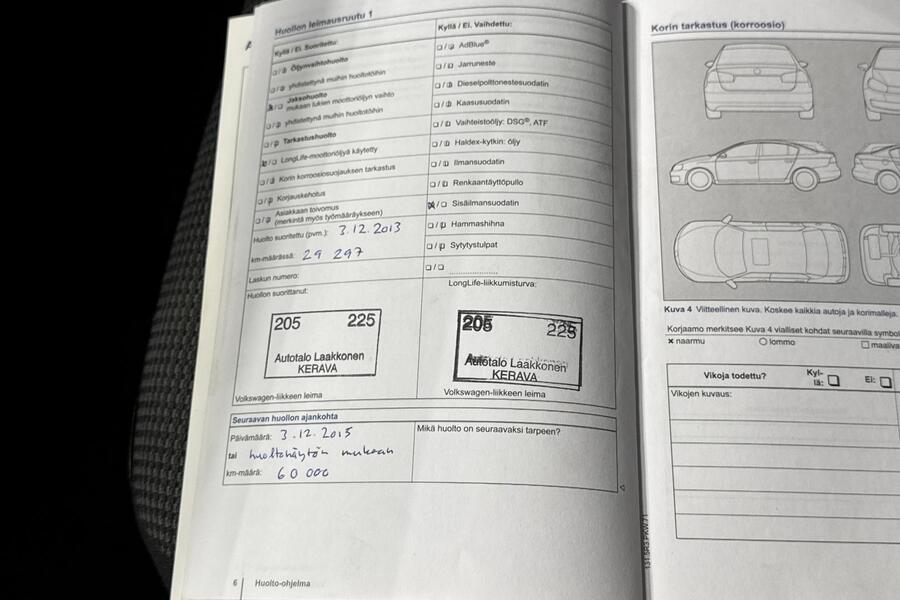 Huollon leimausruutu 1
Kyllä / Ei. Suoritettu:
Öljynvaihtohuolto
yhdistettynä muihin huoltotöihin
Jaksohuolto
mukaan lukien moottoriöljyn vaihto
yhdistettynä muihin huoltotöihin
Tarkastushuolto
LongLife-moottoriöljyä käytetty
Korin korroosiosuojauksen tarkastus
Korjauskehotus
Asiakkaan toivomus
(merkintä myös työmääräykseen)
Huolto suoritettu (pvm.): 3.12.2013
km-määrässä: 29 297
Laskun numero:
Huollon suorittanut:
205 225
Autotalo Laakkonen
KERAVA
Volkswagen-liikkeen leima
Kyllä / Ei. Vaihdettu:
AdBlue®
Jarruneste
Dieselpolttonestesuodatin
Kaasusuodatin
Vaihteistoöljy: DSG®, ATF
Haldex-kytkin: öljy
Ilmansuodatin
Renkaantäyttöpullo
Sisäilmansuodatin
Hammashihna
Sytytystulpat
LongLife-liikkumisturva:
205 225
Autotalo Laakkonen
KERAVA
Volkswagen-liikkeen leima
Seuraavan huollon ajankohta
Päivämäärä: 3.12.2015
tai huoltonäytön mukaan
km-määrä: 60 000
Mikä huolto on seuraavaksi tarpeen?
6 Huolto-ohjelma
Korin tarkastus (korroosio)
Kuva 4 Viitteellinen kuva. Koskee kaikkia autoja ja korimalleja.
Korjaamo merkitsee Kuva 4 vialliset kohdat seuraavilla
× naarmu ○ lommo
Vikoja todettu? Kyl-lä: Ei:
Vikojen kuvaus: